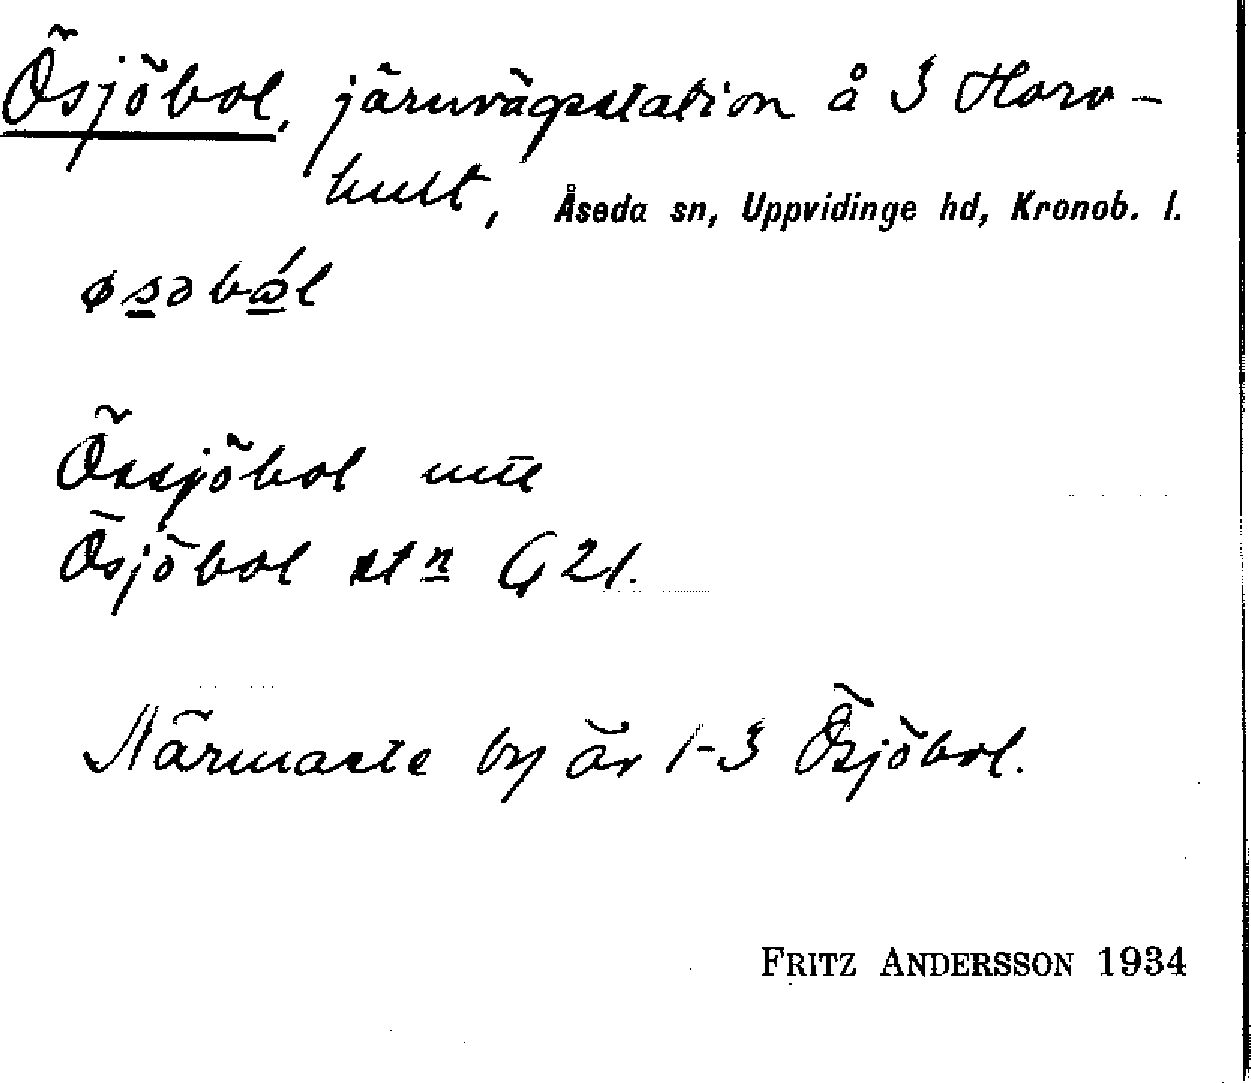 Ösjöbol, järnvägsstation å 3 Horv-
hult, Åseda sn, Uppvidinge hd, Kronob. l.
øsəbål
Össjöbol
Ösjöbol stn G 21.
Närmaste by är 1-3 Ösjöbol.
FRITZ ANDERSSON 1934